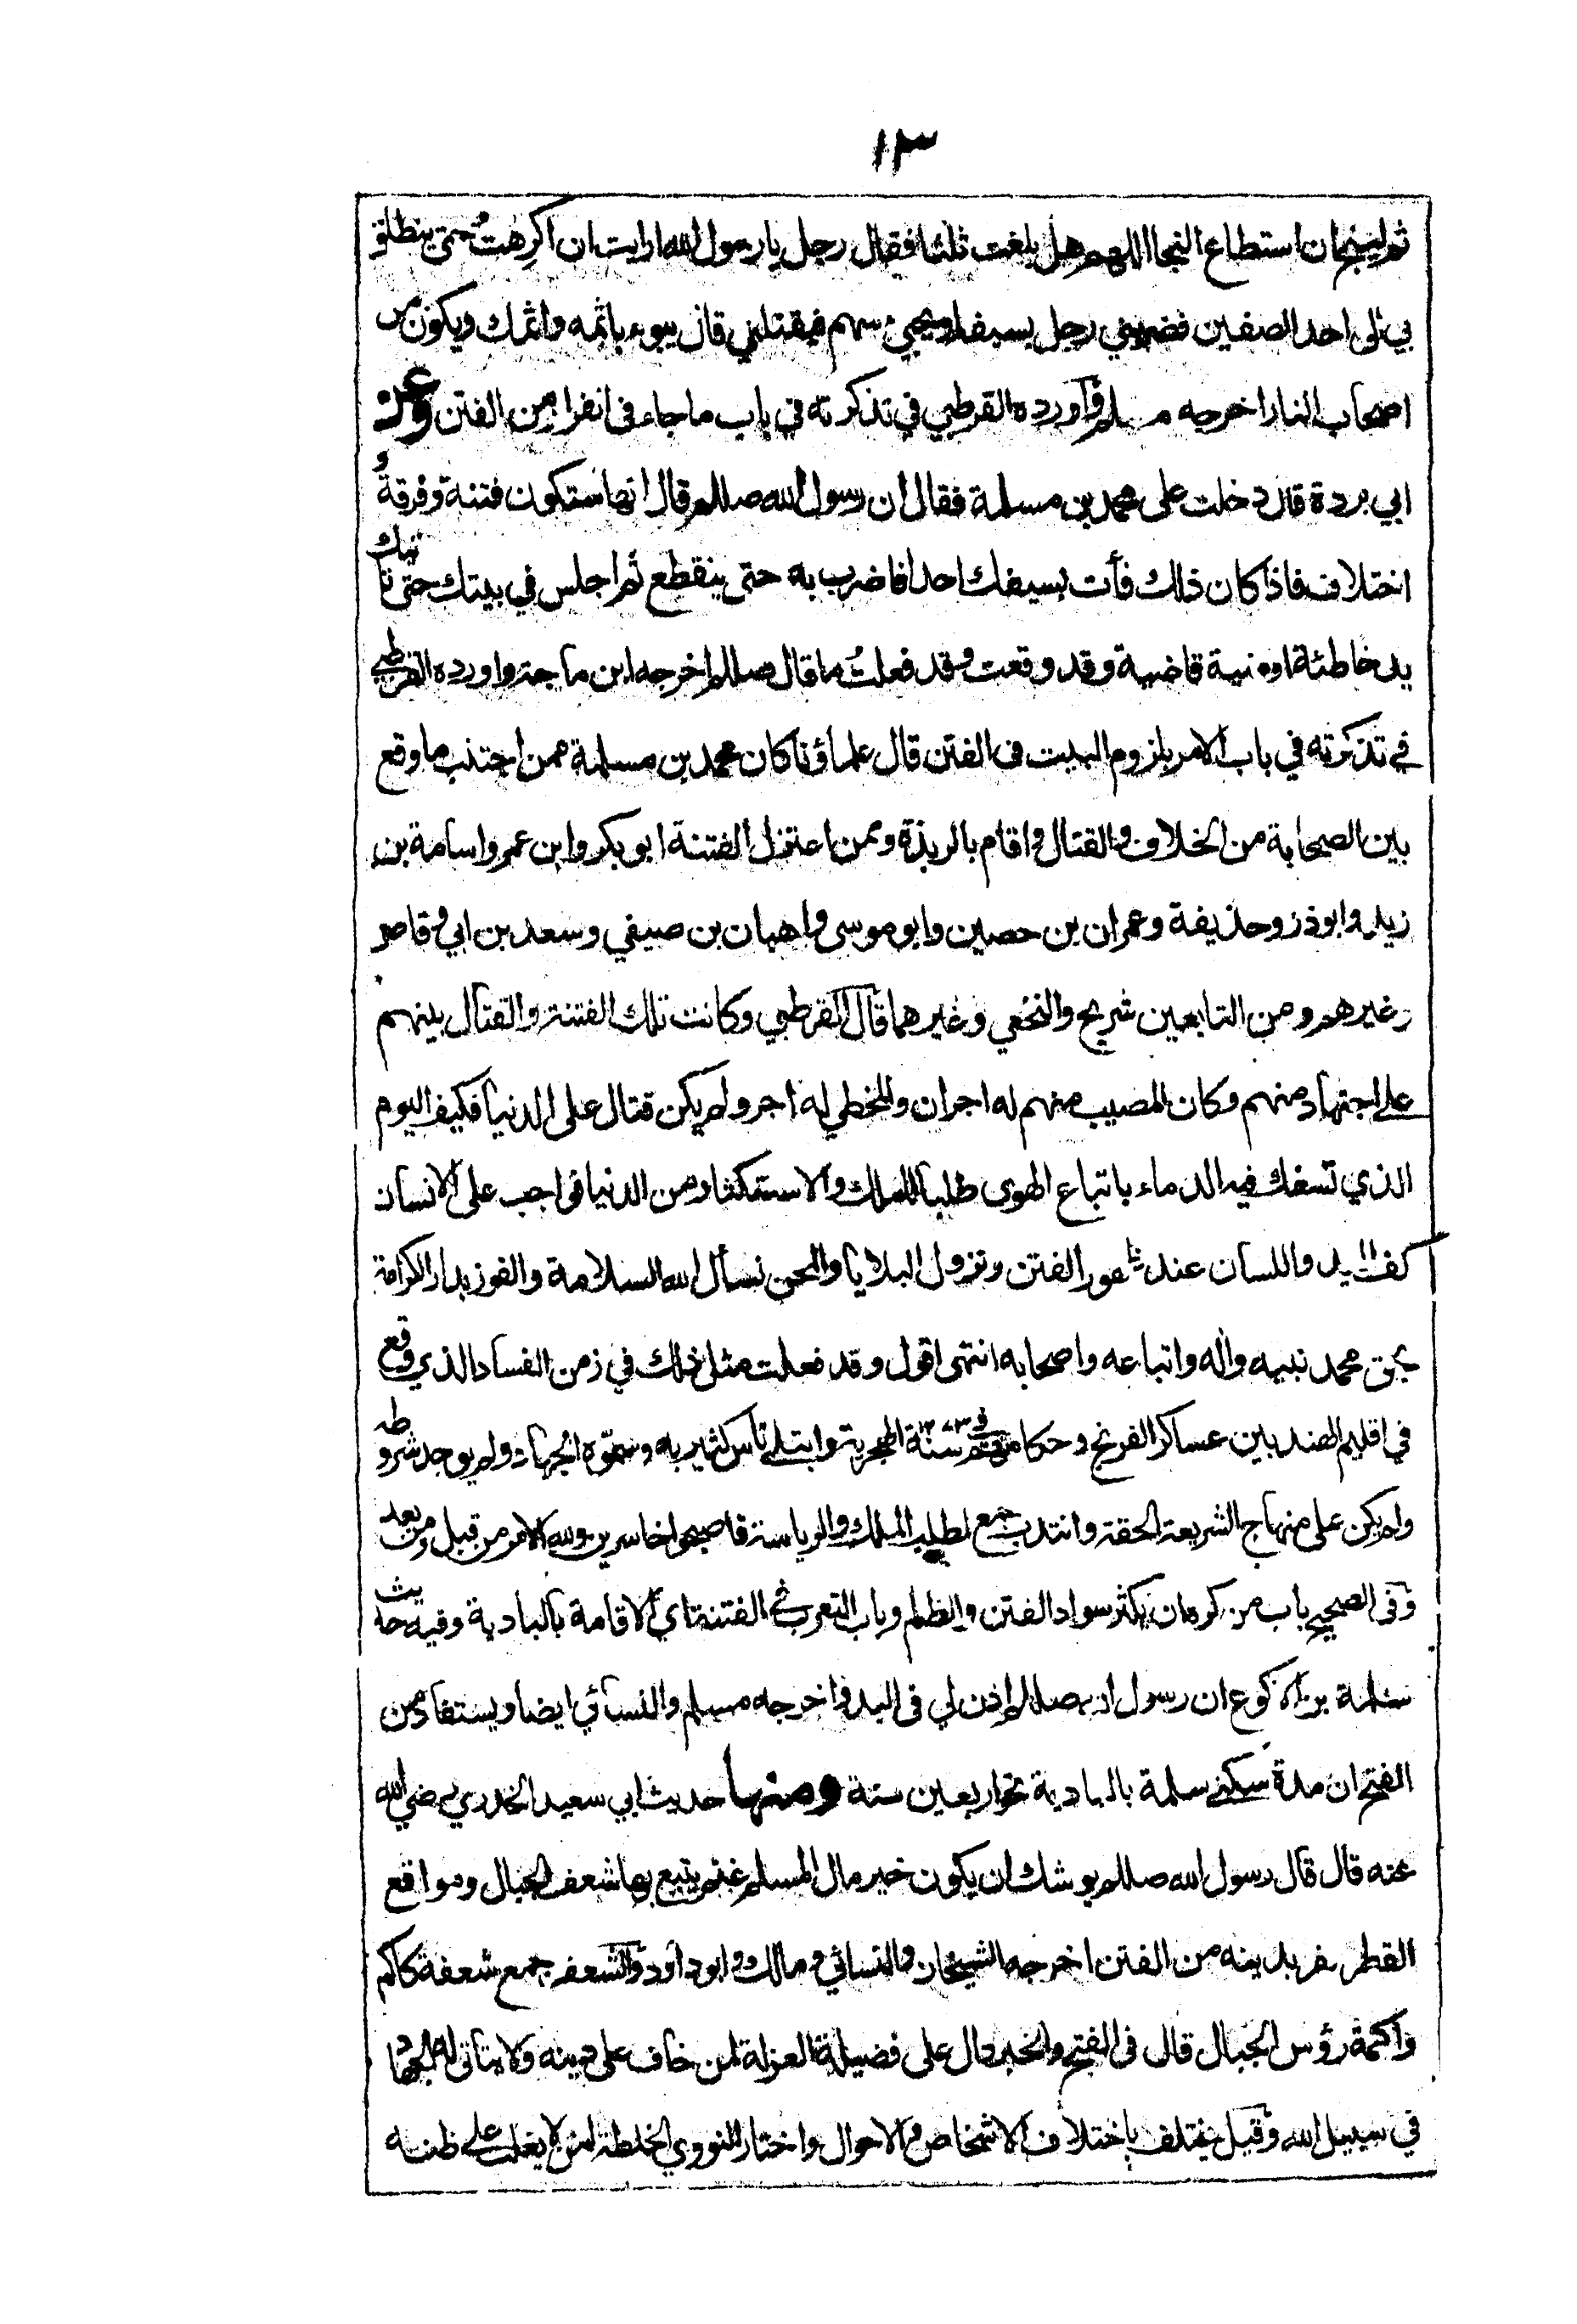 ١٣
ثم لينج ان استطاع النجا اللهم هل بلغت ثلثا فقال رجل يا رسول الله ارايت ان اكرهتُ حتى ينطلق
بي الى احد الصفين فضربني رجل بسيفه او يجيئ سهم فيقتلني قال يبوء باثمه واثمك ويكون من
اصحاب النار اخرجه مسلم واورده القرطبي في تذكرته في باب ماجاء فى الفرار من الفتن وعن
ابي بردة قال دخلت على محمد بن مسلمة فقال ان رسول الله صللم قال انها ستكون فتنة وفرقة و
اختلاف فاذا كان ذلك فأت بسيفك احدا فاضرب به حتى ينقطع ثم اجلس في بيتك حتى تأتيك
يد خاطئة او منية قاضية وقد وقعت وقد فعلتُ ما قال صللم اخرجه ابن ماجة واورده القرطبي
في تذكرته في باب الامر بلزوم البيت فى الفتن قال علماؤنا كان محمد بن مسلمة ممن اجتنب ما وقع
بين الصحابة من الخلاف والقتال واقام بالربذة وممن اعتزل الفتنة ابو بكر وابن عمر واسامة بن
زيد وابوذر وحذيفة وعمران بن حصين وابو موسى واهبان بن صيفي وسعد بن ابي وقاص
وغيرهم ومن التابعين شريح والنخعي وغيرهما قال القرطبي وكانت تلك الفتنة والقتال بينهم
على اجتهاد منهم وكان المصيب منهم له اجران والمخطي له اجر ولم يكن قتال على الدنيا فكيف اليوم
الذي تسفك فيه الدماء باتباع الهوى طلبا للملك والاستكثار من الدنيا فواجب على الانسان
كف اليد واللسان عند ظهور الفتن ونزول البلايا والمحن نسأل الله السلامة والفوز بدار الكرامة
بحق محمد نبيه واله واتباعه واصحابه انتهى اقول وقد فعلت مثل ذلك في زمن الفساد الذي وقع
في اقليم الهند بين عساكر الفرنج وحكامهم في سنة ١٢٧٣ الهجرية وابتلي ناس كثير به وسموّه الجهاد ولم يوجد شروطه
ولم يكن على منهاج الشريعة الحقة وانتدب جمع لطلب الملك والرياسة فاصبحوا خاسرين ولله الامر من قبل ومن بعد
وفى الصحيح باب من كره ان يكثر سواد الفتن والظلم وباب التعرب في الفتنة اي الاقامة بالبادية وفيه حديث
سلمة بن الاكوع ان رسول الله صللم اذن لي فى البدو اخرجه مسلم والنسائي ايضا ويستفاد من
الفتح ان مدة سكنى سلمة بالبادية نحو اربعين سنة ومنها حديث ابي سعيد الخدري رضي الله
عنه قال قال رسول الله صللم يوشك ان يكون خير مال المسلم غنم يتبع بها شعف الجبال ومواقع
القطر يفر بدينه من الفتن اخرجه الشيخان والنسائي ومالك وابوداود والشعف جمع شعفة كاكم
واكمة رؤس الجبال قال فى الفتح والخبر دال على فضيلة العزلة لمن خاف على دينه ولا يتاتى له الجهاد
في سبيل الله وقيل يختلف باختلاف الاشخاص والاحوال واختار النووي الخلطة لمن لا يغلب على ظنه